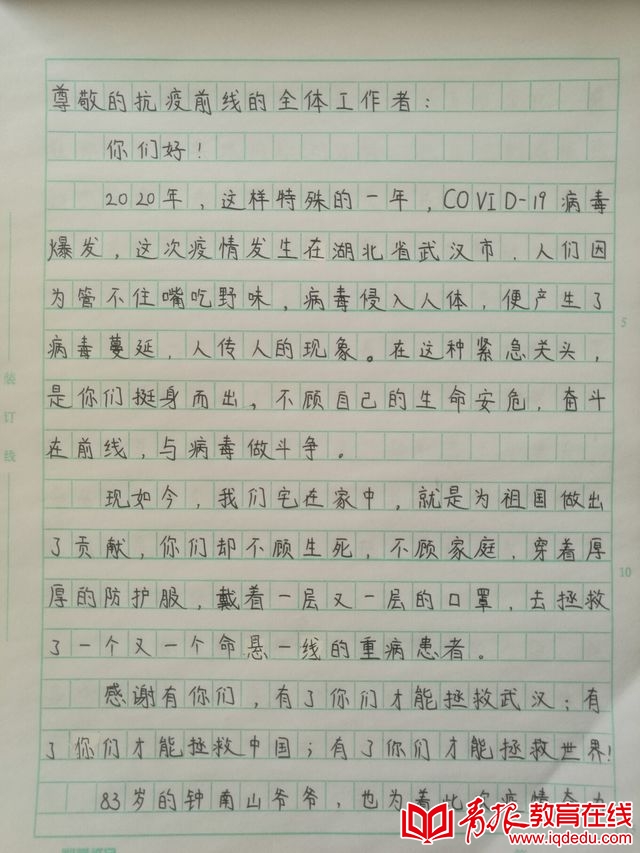 尊敬的抗疫前线的全体工作者：
你们好！
2020年，这样特殊的一年，COVID-19病毒
爆发，这次疫情发生在湖北省武汉市，人们因
为管不住嘴吃野味，病毒侵入人体，便产生了
5
病毒蔓延，人传人的现象。在这种紧急关头，
是你们挺身而出，不顾自己的生命安危，奋斗
在前线，与病毒做斗争。
现如今，我们宅在家中，就是为祖国做出
了贡献，你们却不顾生死，不顾家庭，穿着厚
10
厚的防护服，戴着一层又一层的口罩，去拯救
了一个又一个命悬一线的重病患者。
感谢有你们，有了你们才能拯救武汉；有
了你们才能拯救中国；有了你们才能拯救世界！
83岁的钟南山爷爷，也为着此次疫情
装订线
青报教育在线
www.iqdedu.com